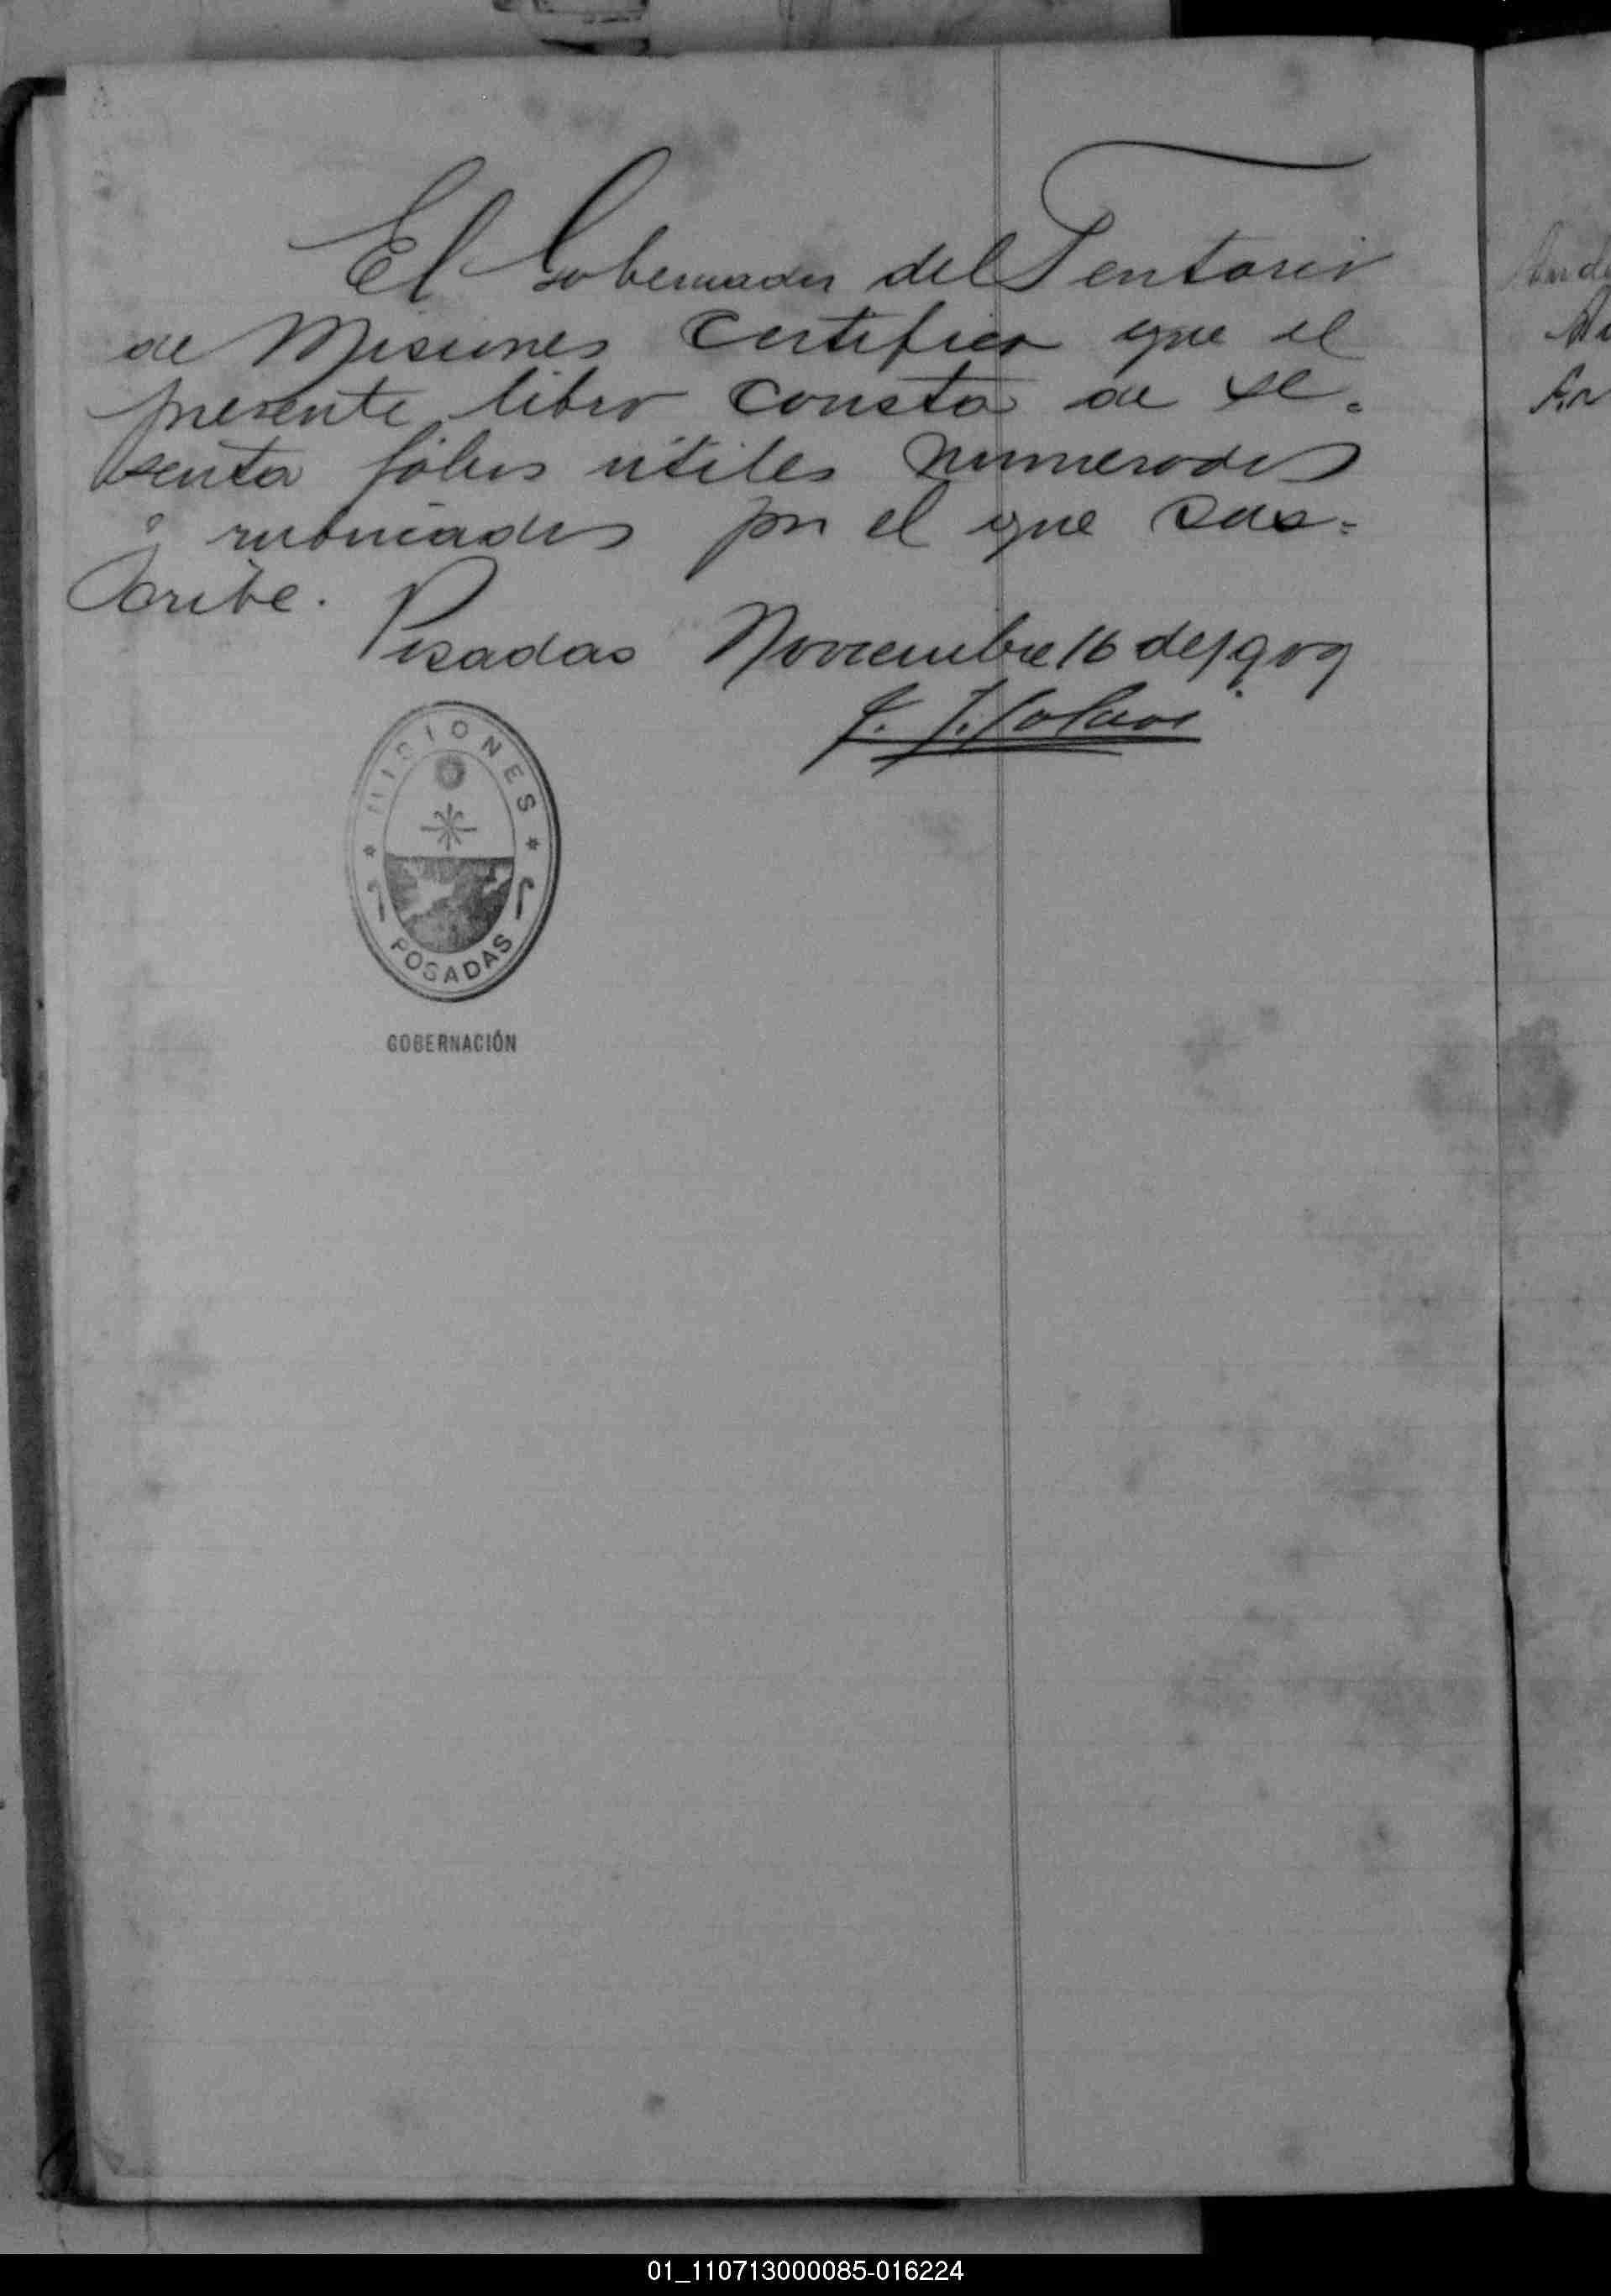 El Gobernador del Territorio
de Misiones Certifica que el
presente libro consta de se-
senta fólios útiles numerados
y rubricados por el que sus=
cribe.
Posadas Noviembre 16 de 1909
J. J. Lanusse
MISIONES
POSADAS
GOBERNACIÓN
01_110713000085-016224